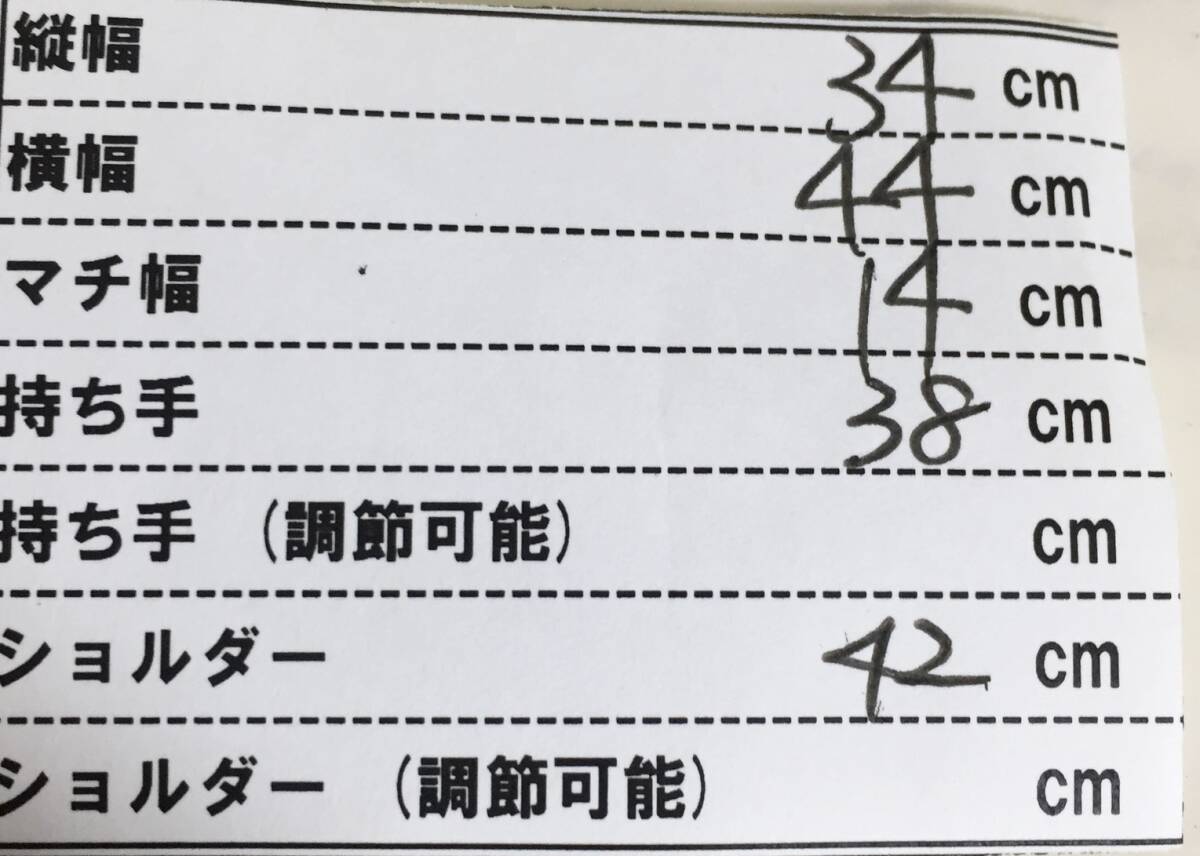 縦幅 34 cm
横幅 44 cm
マチ幅 14 cm
持ち手 38 cm
持ち手 (調節可能) cm
ショルダー 42 cm
ショルダー (調節可能) cm